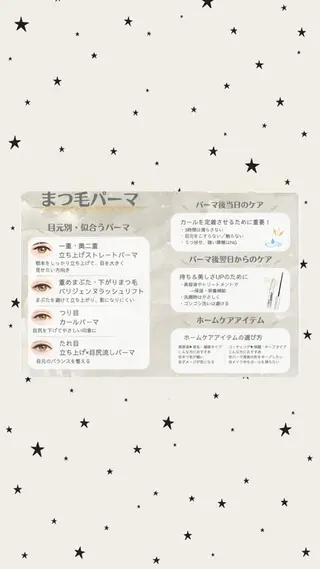 まつ毛パーマ
目元別・似合うパーマ
一重・奥二重
立ち上げストレートパーマ
根本をしっかり立ち上げて、目を大きく
見せたい方向き
重めまぶた・下がりまつ毛
パリジェンヌラッシュリフト
まぶたを避けて立ち上がり、影になりにくい
つり目
カールパーマ
目尻を下げてやさしい印象に
たれ目
立ち上げ×目尻流しパーマ
目元のバランスを整える
パーマ後当日のケア
カールを定着させるために重要！
・目元をこすらない／触らない
・うつ伏せ、強い摩擦はNG
パーマ後翌日からのケア
持ち＆美しさUPのために
・美容液やトリートメントで
→保湿・栄養補給
・洗顔時はやさしく
・ゴシゴシ洗いは避ける
ホームケアアイテム
ホームケアアイテムの選び方
こんな方におすすめ
こんな方におすすめ